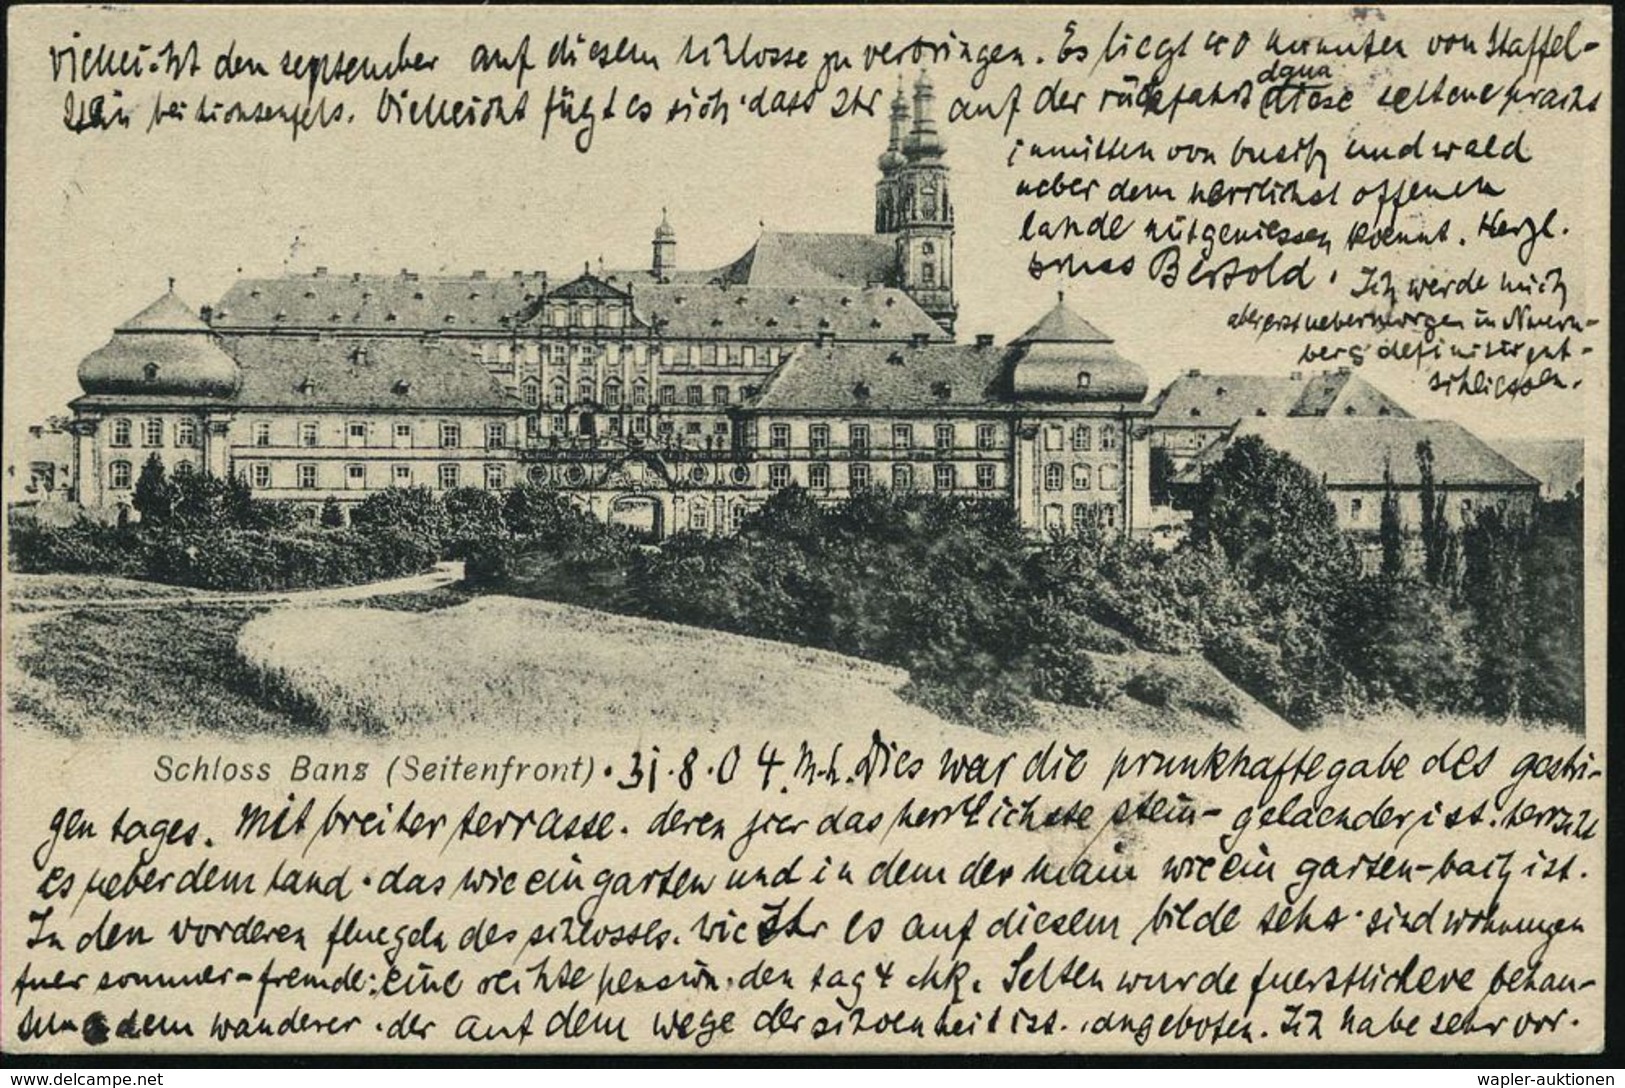 vielleicht den september auf diesem schlosse zu verbringen. Es liegt 40 minuten von Staffel-
stein bei Lichtenfels. Vielleicht fügt es sich · dass Ihr auf der rückfahrt diese seltene pracht
dann
inmitten von busch und wald
ueber dem herrlichst offenen
lande mitgeniessen koennt. Herzl.
gruss Bertold. Ich werde mich
aber erst uebermorgen in Nuern-
berg definitiv ent-
schliessen.
Schloss Banz (Seitenfront) · 31 · 8 · 04. M.h. Dies war die prunkhafte gabe des gestri-
gen tages. Mit breiter terrasse · deren hier das herrlichste stein-gelaender ist · herrscht
es ueber dem land · das wie ein garten und in dem der main wie ein garten-bach ist.
In den vorderen fluegeln des schlosses · wie Ihr es auf diesem bilde seht · sind wohnungen
fuer sommer-fremde: eine rechte pension · den tag 4 Mk. Selten wurde fuerstlichere behau-
sung dem wanderer · der auf dem wege der schoenheit ist · angeboten. Ich habe sehr vor ·
wapler-auktionen